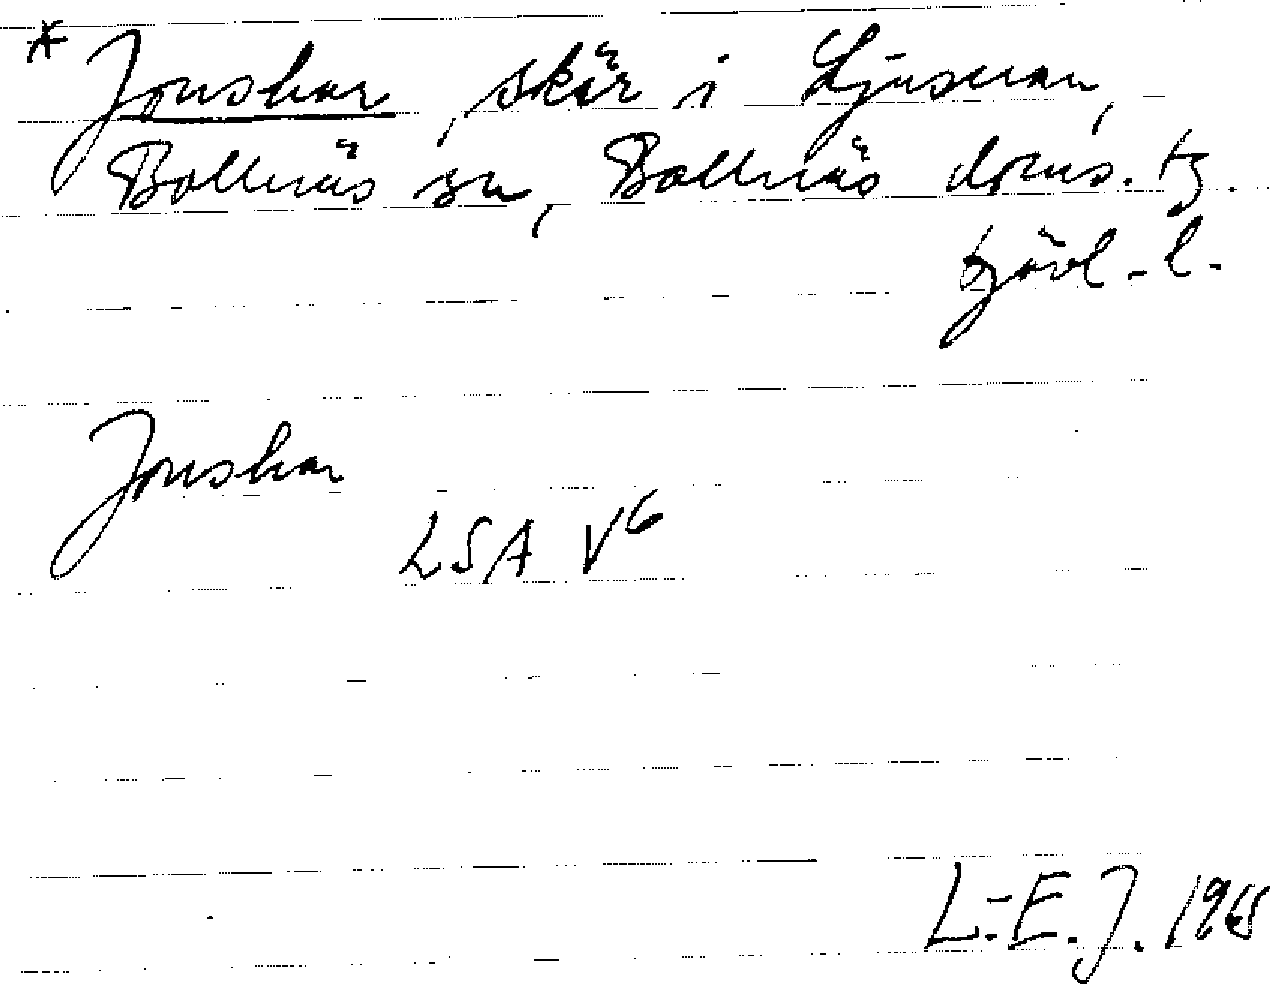 * Jonshar, skär i Ljusnan,
Bollnäs sn, Bollnäs doms. tg.
Gävl. l.
Jonshar
LSA V6
L.-E. J. 1968